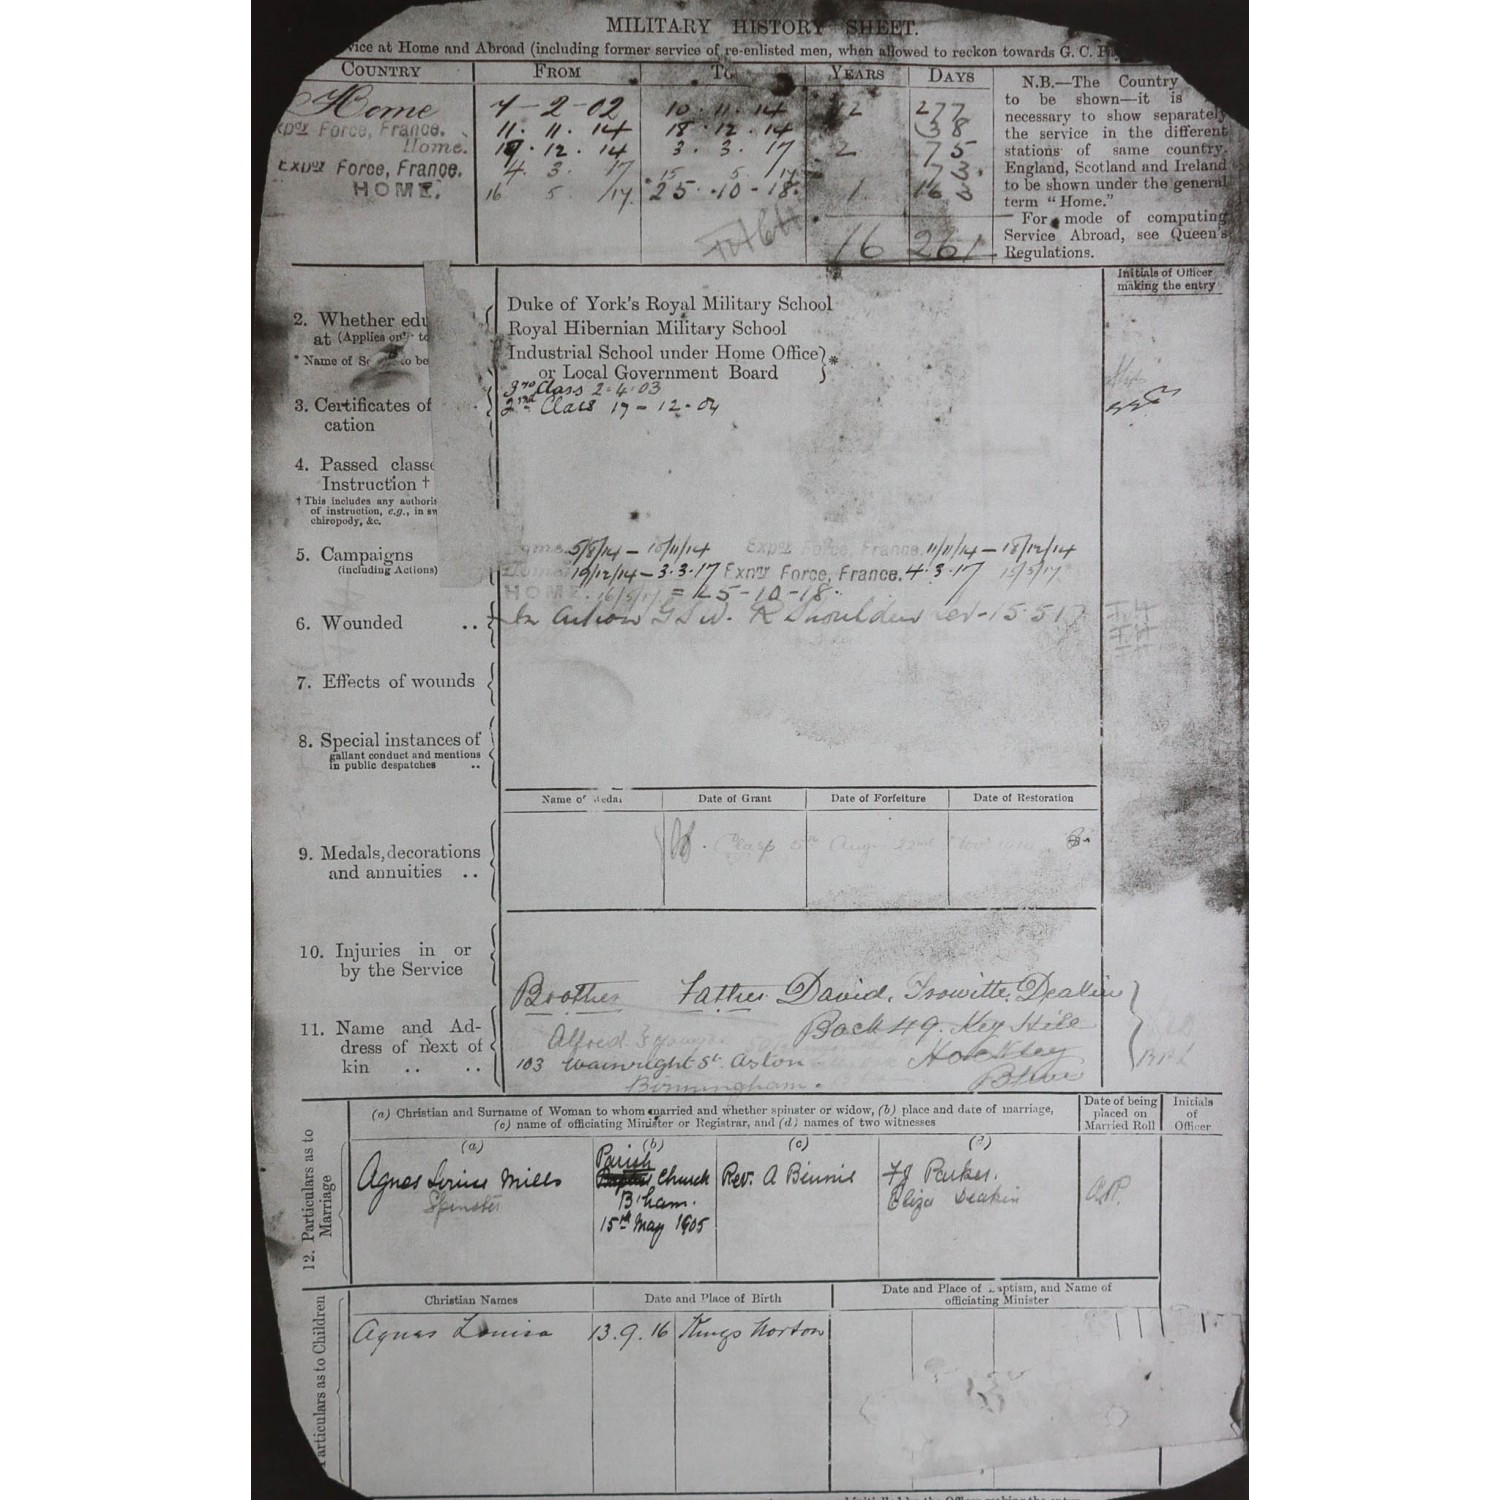 MILITARY HISTORY SHEET.
vice at Home and Abroad (including former service of re-enlisted men, when allowed to reckon towards G. C.
COUNTRY FROM To YEARS DAYS
Home 7-2-02 10.11.14 12 277
Expy Force, France. 11.11.14 18.12.14 38
Home. 19.12.14 3.3.17 2 75
Expy Force, France. 4 3 17 15 5 /17 73.
HOME. 16 5 /17. 25.10-18. 1 163
16 261
N.B.—The Country
to be shown—it is
necessary to show separately
the service in the different
stations of same country.
England, Scotland and Ireland
to be shown under the general
term "Home."
For mode of computing
Service Abroad, see Queen's
Regulations.
Initials of Officer
making the entry
2. Whether edu
at (Applies only to
* Name of Sc to be
Duke of York's Royal Military School
Royal Hibernian Military School
Industrial School under Home Office
or Local Government Board } *
3. Certificates of
cation
3rd Class 2.4.03
2nd Class 19-12-04
4. Passed classe
Instruction †
† This includes any authoris
of instruction, e.g., in sw
chiropody, &c.
5. Campaigns
(including Actions)
Home 5/8/14 – 10/11/14 Expy Force, France. 11/11/14 – 18/12/14
Home 19/12/14 – 3.3.17 Expy Force, France. 4.3.17 15/5/17
HOME. 16/5/17 = 25-10-18.
6. Wounded ..
In action G S W. R Shoulder 15.5.17
7. Effects of wounds
8. Special instances of
gallant conduct and mentions
in public despatches ..
Name of Medal Date of Grant Date of Forfeiture Date of Restoration
9. Medals, decorations
and annuities ..
Clasp 5th Aug. 22nd Nov 1914
10. Injuries in or
by the Service
11. Name and Ad-
dress of next of
kin .. ..
Brother Father David, Deakin
Alfred Back 49. Key Hill
103 Wainwright St. Aston Hockley
Birmingham.
12. Particulars as to
Marriage
(a) Christian and Surname of Woman to whom married and whether spinster or widow, (b) place and date of marriage,
(c) name of officiating Minister or Registrar, and (d) names of two witnesses
Date of being
placed on
Married Roll
Initials
of
Officer
(a) (b) (c) (d)
Agnes Louise Mills
Spinster
Parish
Church
B'ham.
15th May 1905
Rev. A Binnie
F J Parkes.
Eliza Deakin
articulars as to Children
Christian Names Date and Place of Birth Date and Place of Baptism, and Name of
officiating Minister
Agnes Louisa 13.9.16 Kings Norton